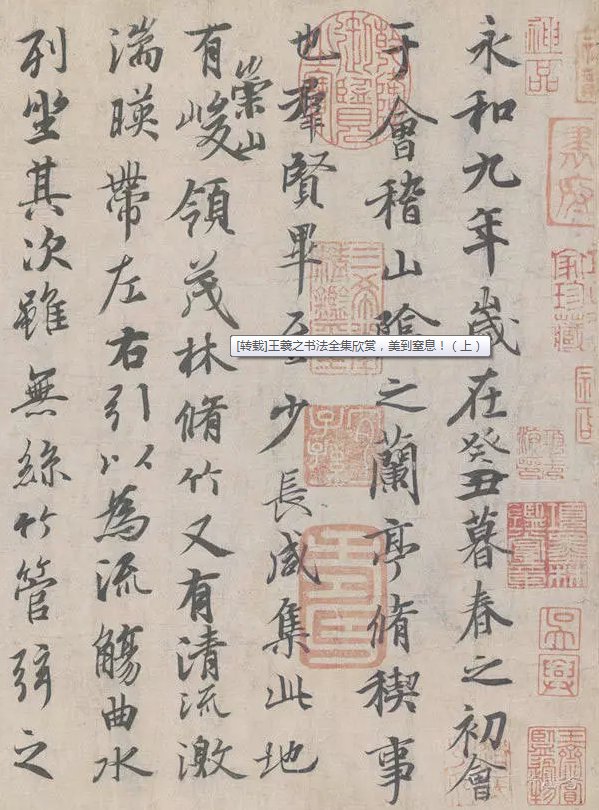 神品
永和九年歲在癸丑暮春之初會
于會稽山陰之蘭亭脩稧事
也羣賢畢至少長咸集此地
有崇山峻領茂林脩竹又有清流激
湍暎帶左右引以為流觴曲水
列坐其次雖無絲竹管弦之
[转载]王羲之书法全集欣赏，美到窒息！（上）